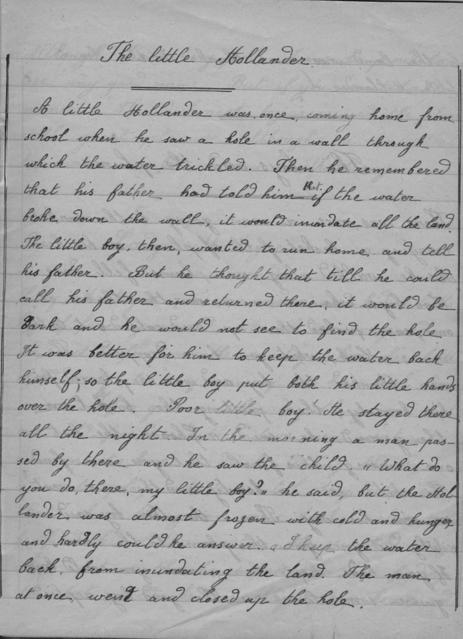 The little Hollander.
A little Hollander was, once, coming home from
school when he saw a hole in a wall through
which the water trickled. Then he remembered
that his father had told him that if the water
broke down the wall, it would inundate all the land.
The little boy, then, wanted to run home, and tell
his father. But he thought that till he could
call his father and returned there, it would be
dark and he would not see to find the hole
It was better for him to keep the water back
himself; so the little boy put both his little hands
over the hole. Poor little boy! He stayed there
all the night. In the morning a man pas-
sed by there and he saw the child, "What do
you do, there, my little boy?" he said, but the Hol
lander was almost frozen with cold and hunger
and hardly could he answer. I keep the water
back, from inundating the land. The man,
at once, went and closed up the hole.